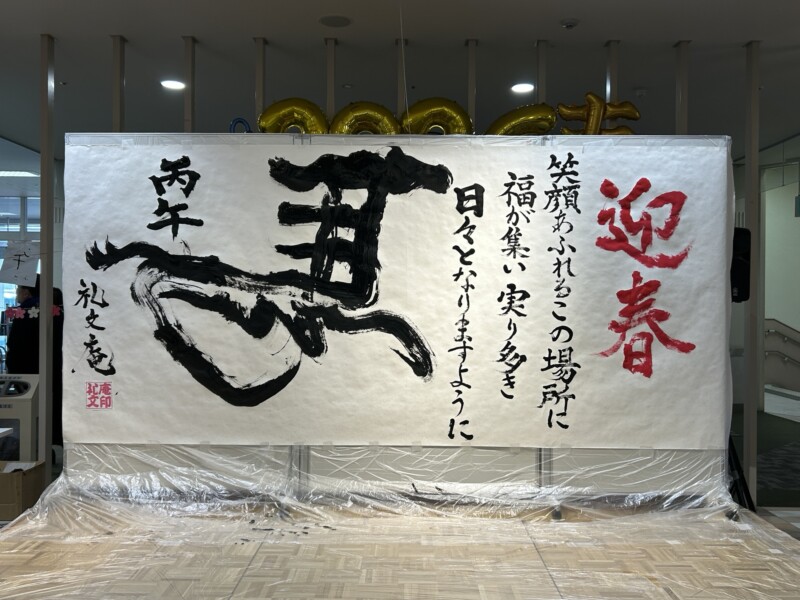 迎春
笑顔あふれるこの場所に
福が集い 実り多き
日々となりますように
馬
丙午
礼文庵